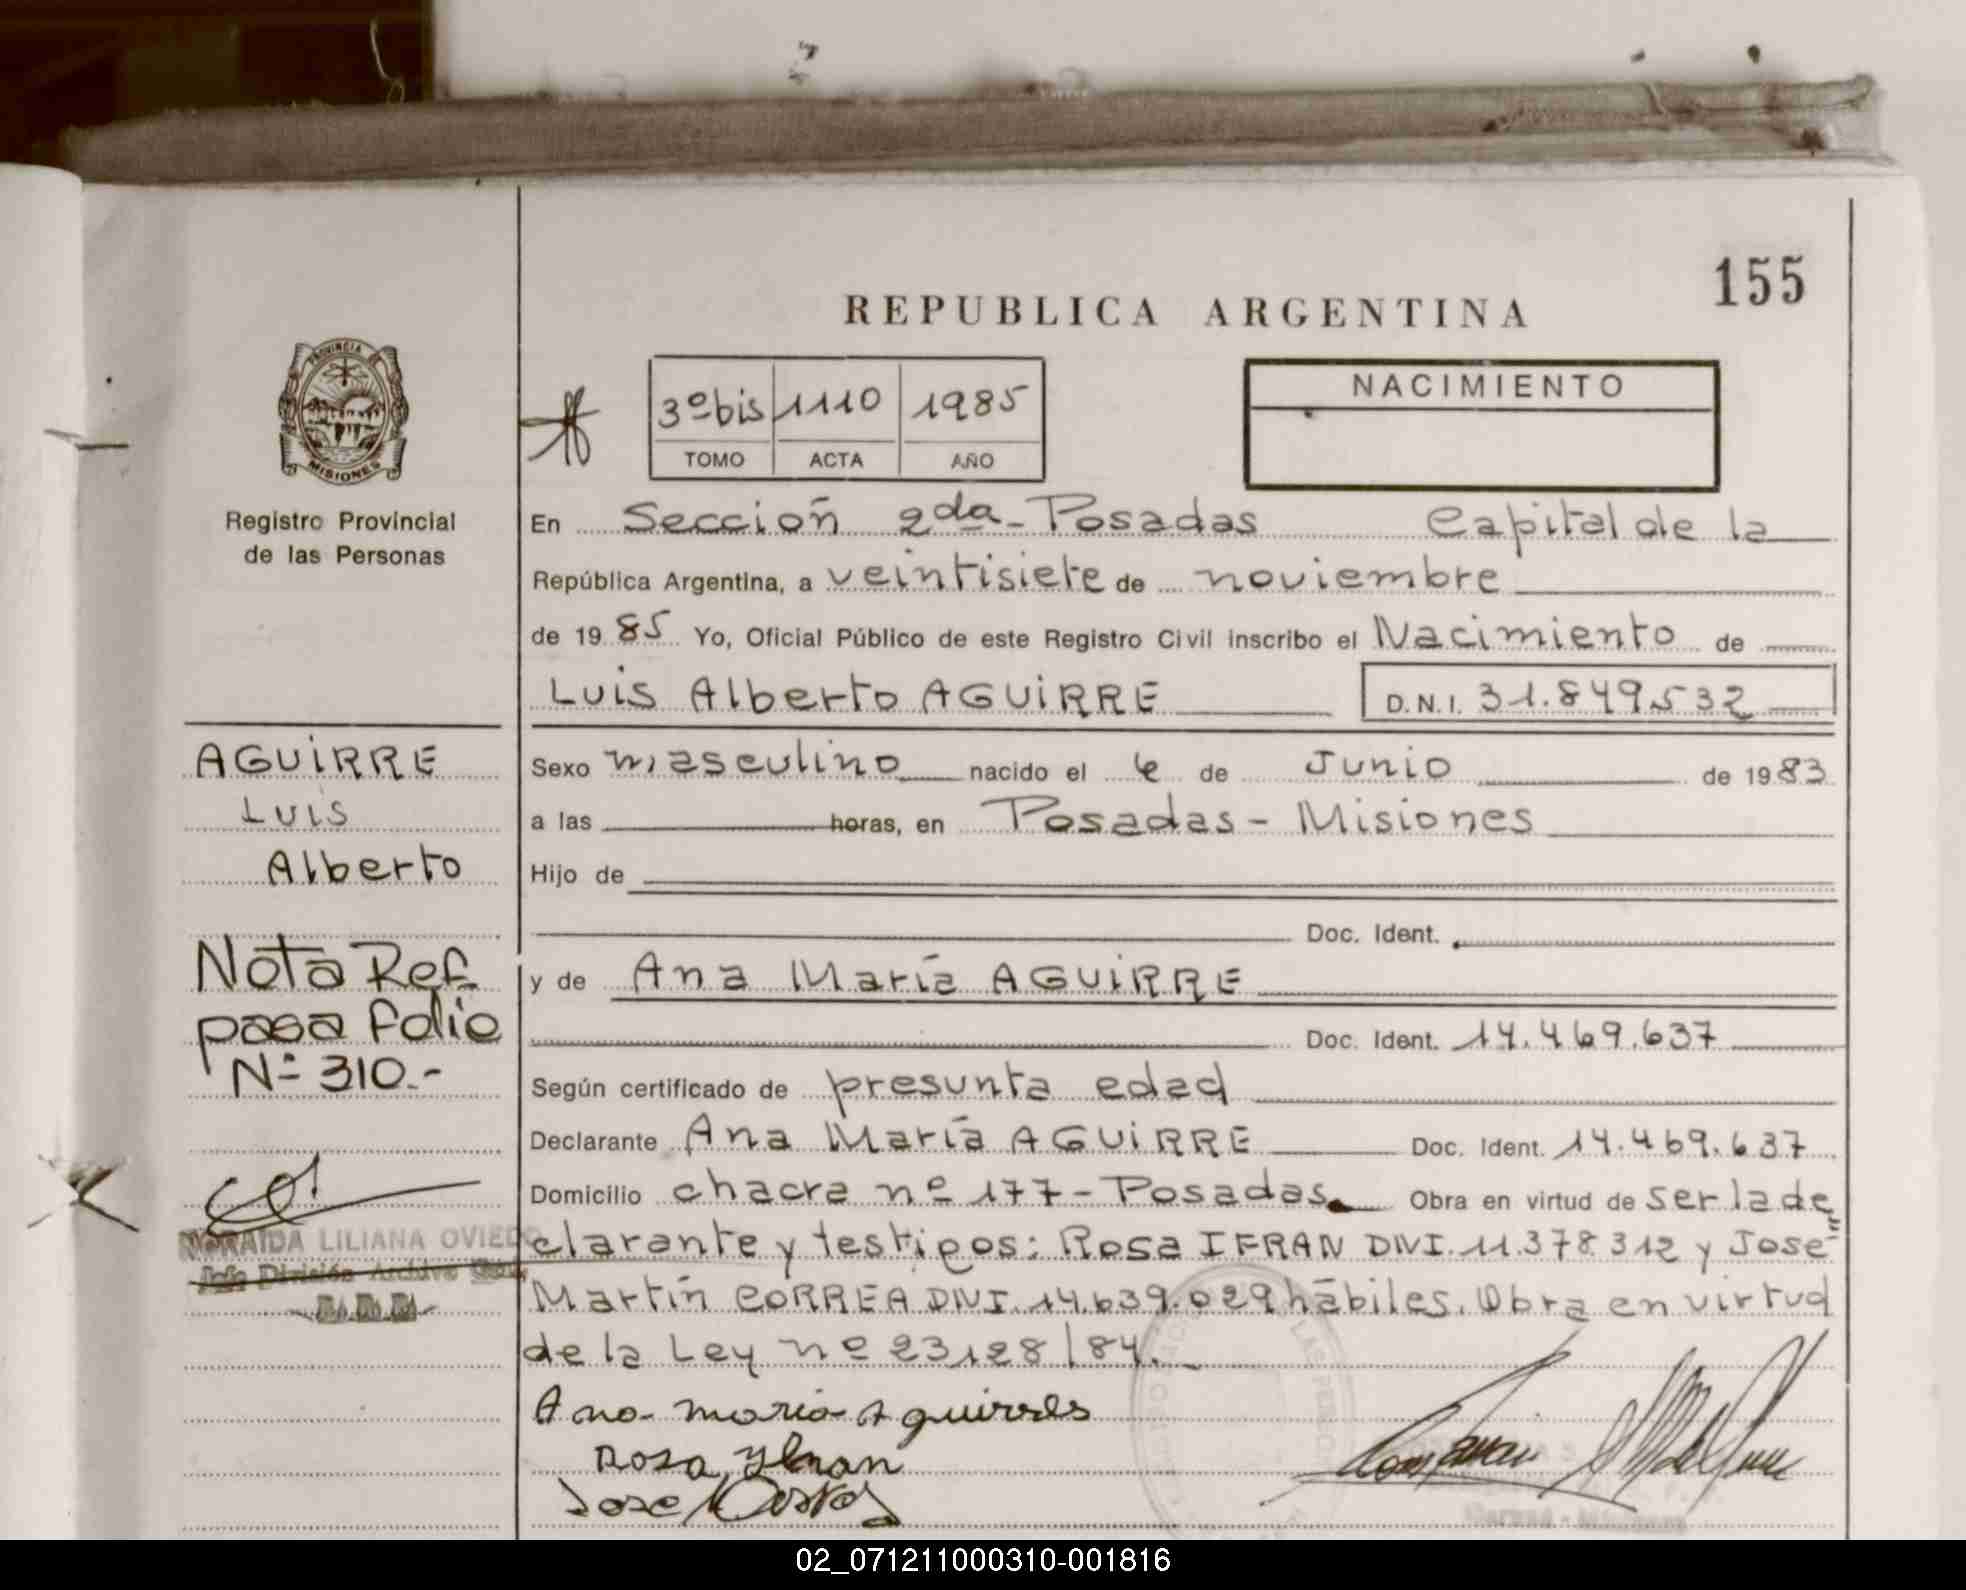 155
REPUBLICA ARGENTINA
PROVINCIA DE
MISIONES
Registro Provincial
de las Personas
3º bis 1110 1985
TOMO ACTA AÑO
NACIMIENTO
En Sección 2da - Posadas Capital de la
República Argentina, a veintisiete de noviembre
de 19 85 Yo, Oficial Público de este Registro Civil inscribo el Nacimiento de
Luis Alberto AGUIRRE D.N.I. 31.849.532
AGUIRRE
Luis
Alberto
Nota Ref.
pasa folio
Nº 310.-
LILIANA OVIEDO
Jefe División Archivo
Sexo masculino nacido el 6 de Junio de 19 83
a las horas, en Posadas - Misiones
Hijo de
Doc. Ident.
y de Ana María AGUIRRE
Doc. Ident. 14.469.637
Según certificado de presunta edad
Declarante Ana María AGUIRRE Doc. Ident. 14.469.637
Domicilio chacra nº 177 - Posadas. Obra en virtud de ser la de
clarante y testigos: Rosa IFRAN DNI. 11.378.312 y José
Martín CORREA DNI. 14.639.029 hábiles. Obra en virtud
de la Ley nº 23128/84.
Ana Maria Aguirres
Rosa Yfran
Jose
02_071211000310-001816